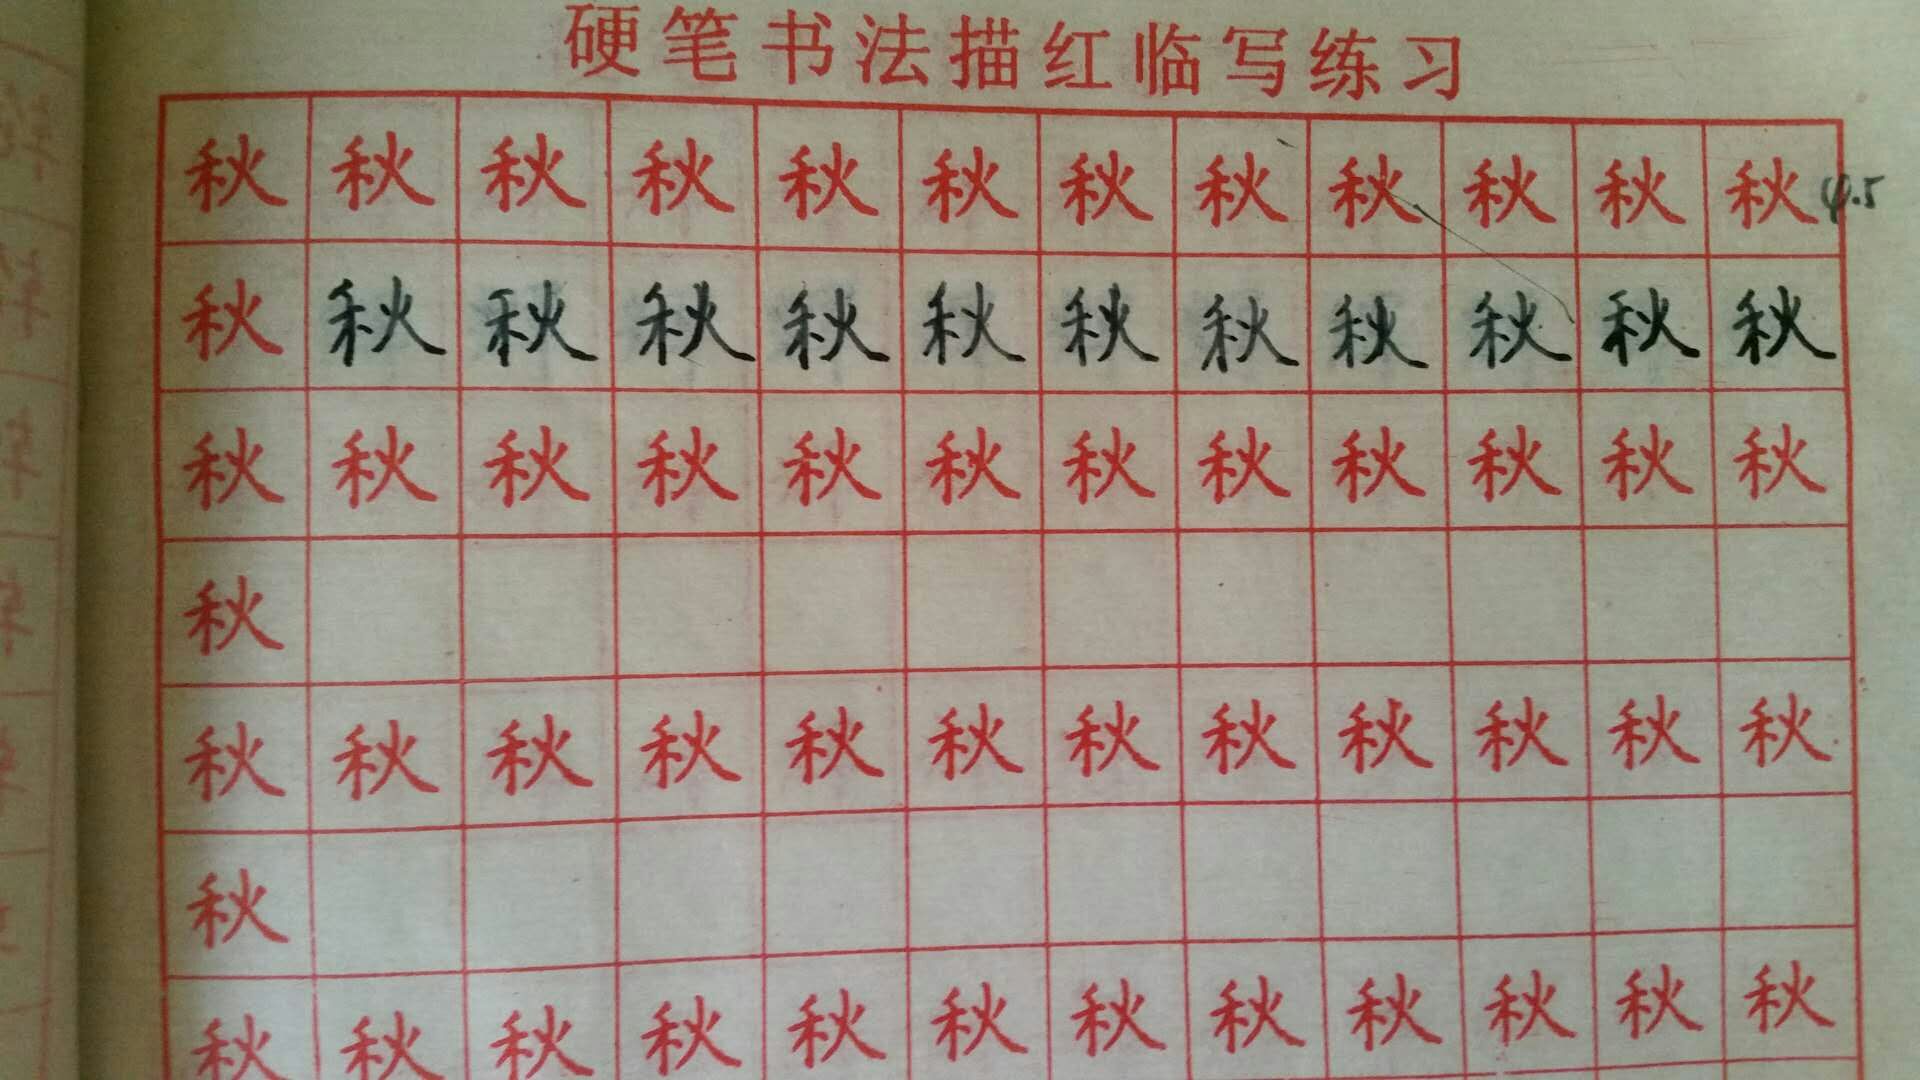 硬笔书法描红临写练习
秋秋秋秋秋秋秋秋秋秋秋秋 4.5
秋秋秋秋秋秋秋秋秋秋秋秋
秋秋秋秋秋秋秋秋秋秋秋秋
秋
秋秋秋秋秋秋秋秋秋秋秋秋
秋
秋秋秋秋秋秋秋秋秋秋秋秋